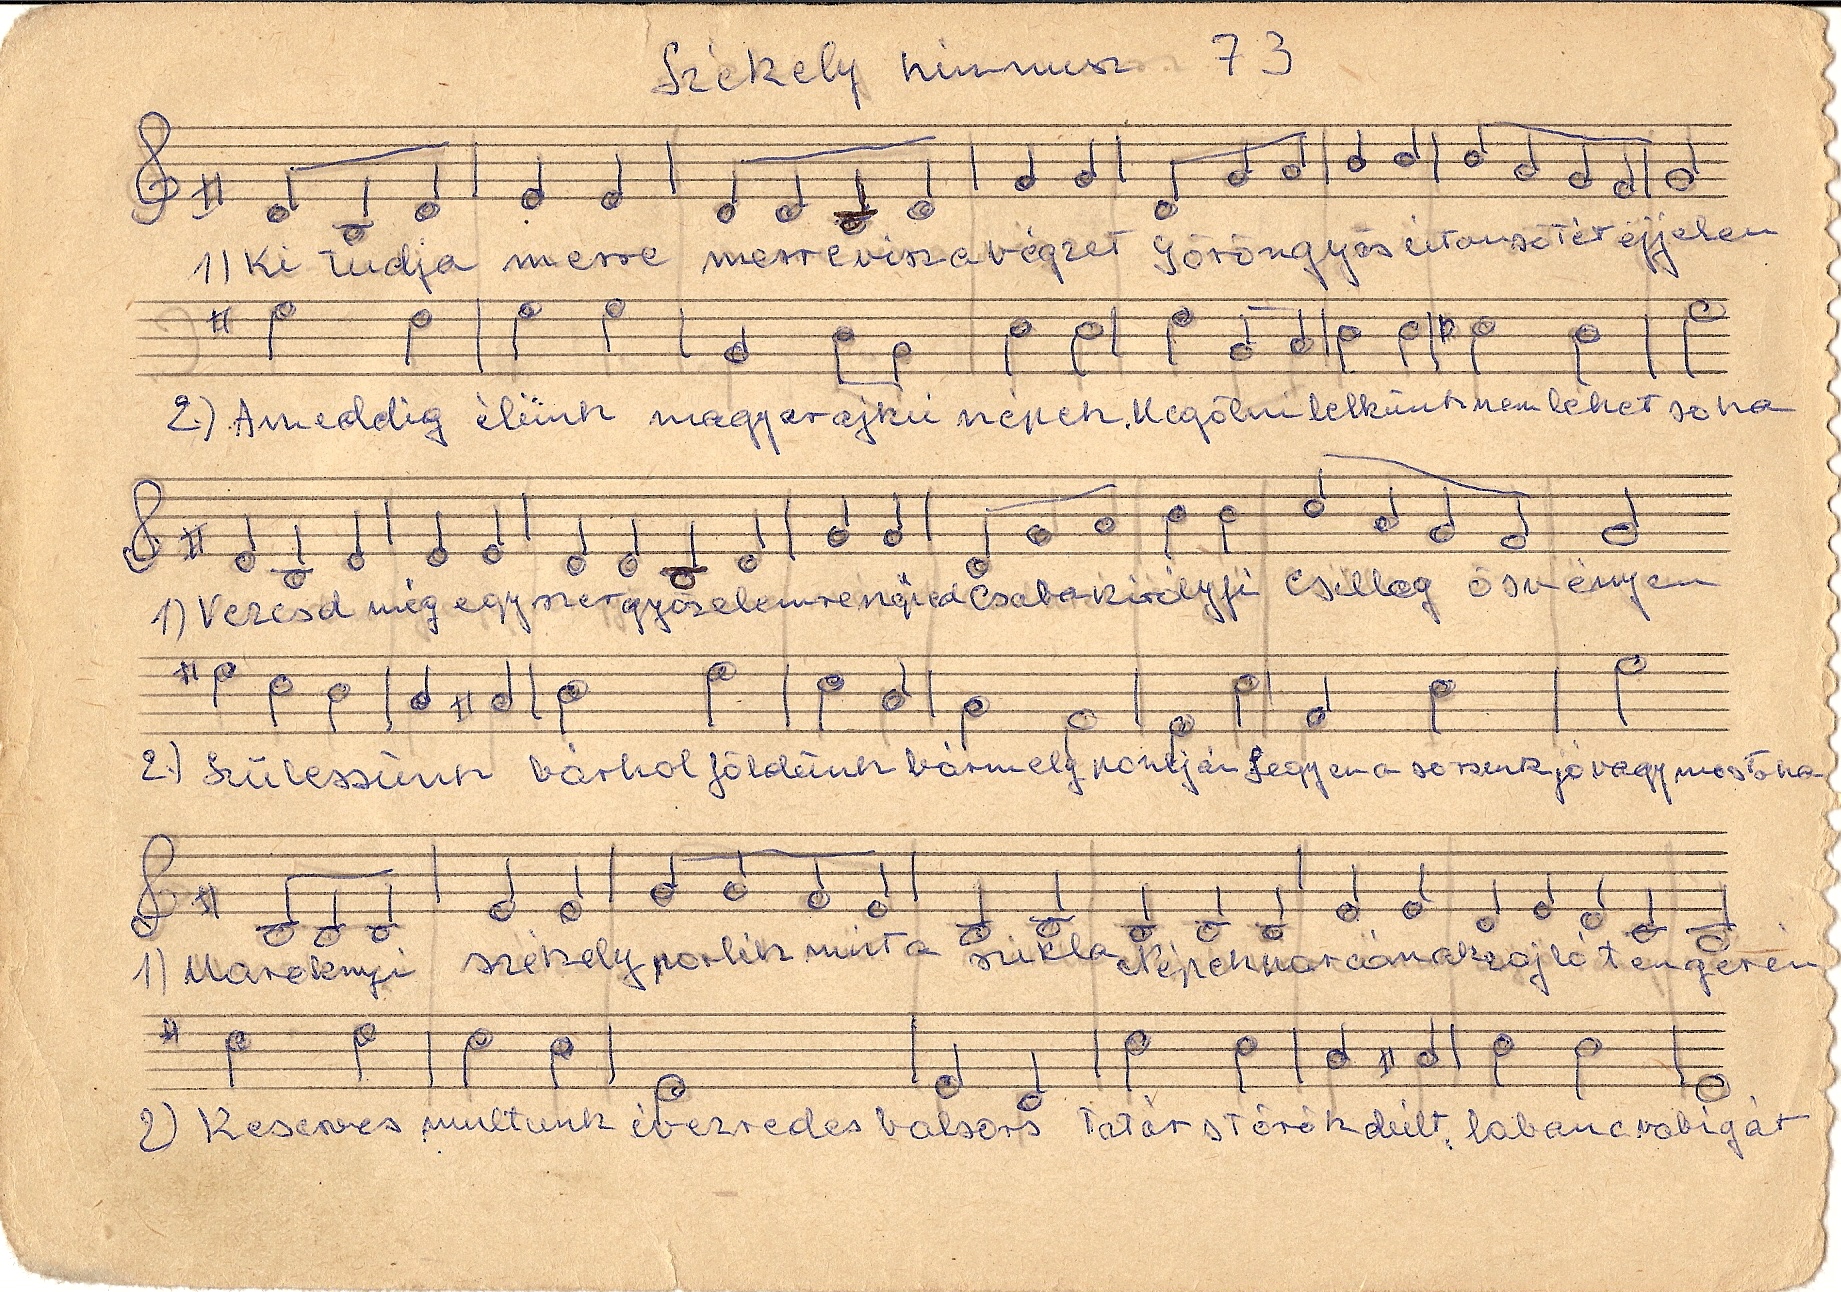 Székely himnusz 73
1) Ki tudja merre merre visz a végzet Göröngyös úton sötét éjjelen
2.) Ameddig élünk magyar ajkú népek. Megölni lelkünk nem lehet soha
1) Vezesd még egyszer győzelemre néped Csaba királyfi Csillag ösvényen
2.) Szülessünk bárhol földünk bármely pontján Legyen a sorsunk jó vagy mostoha
1) Maroknyi székely porlik mint a szikla Népek harcának zajló tengerén
2) Keserves multunk évezredes balsors Tatár s török dúlt, labanc rabigát